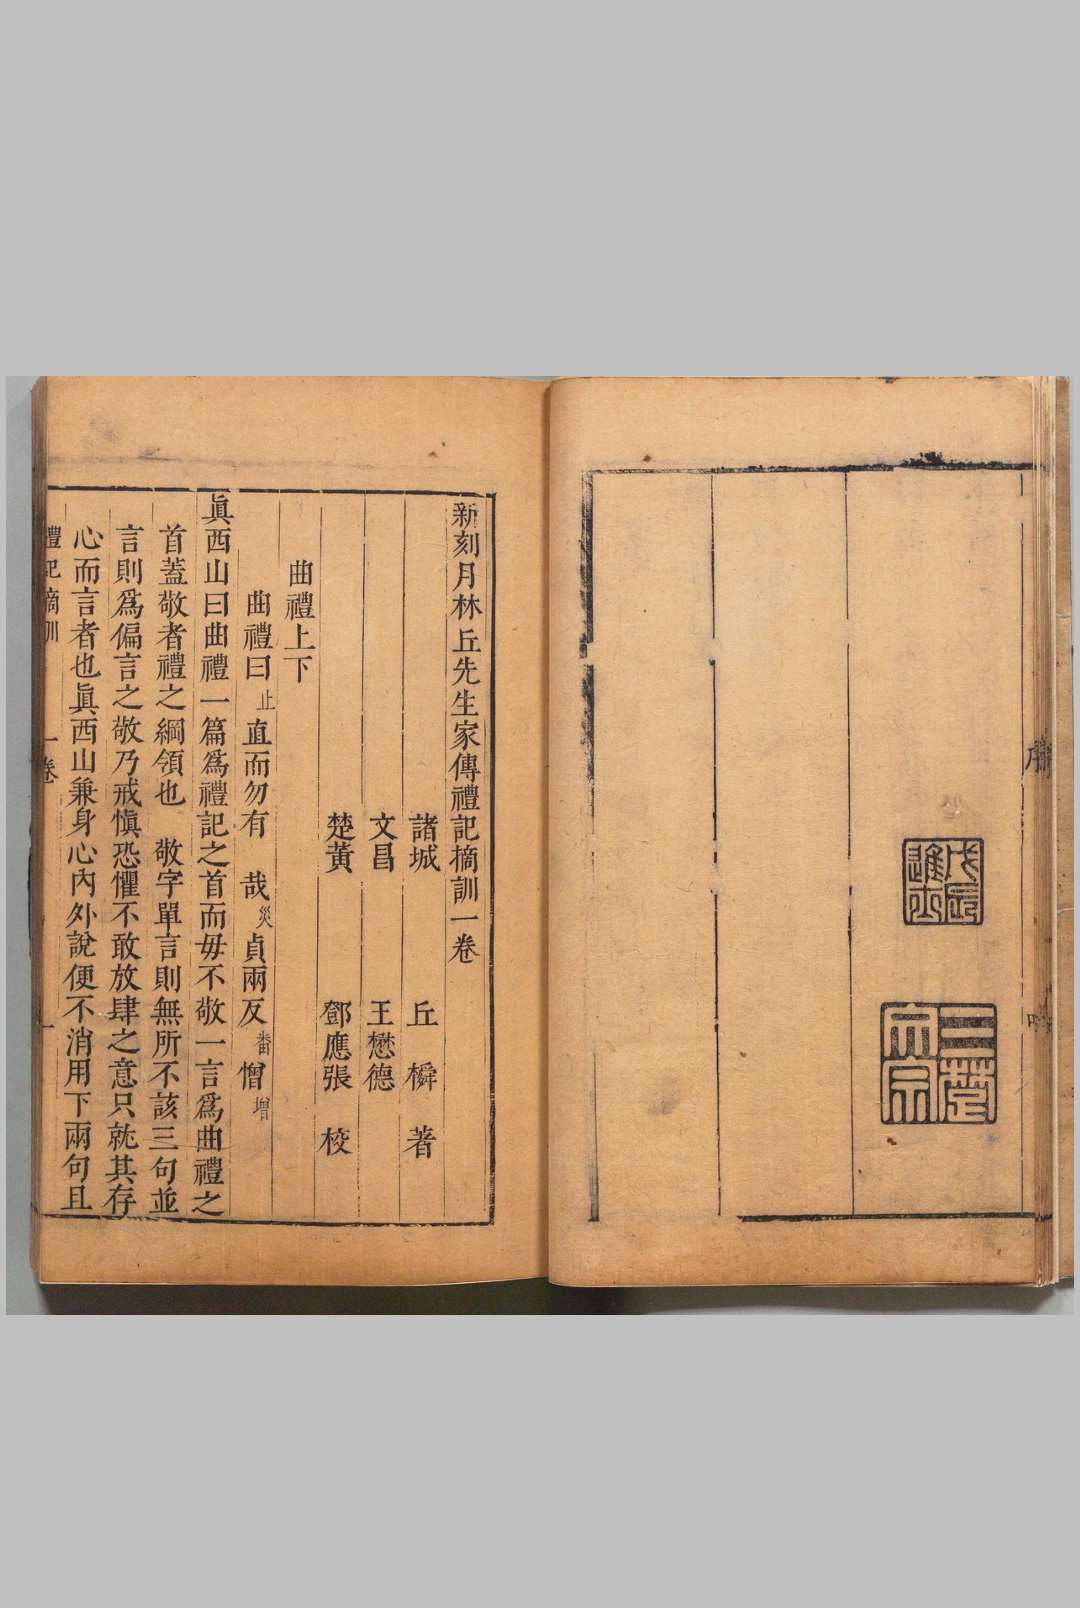 戊辰進士
三楚文宗
新刻月林丘先生家傳禮記摘訓一卷
諸城 丘橓 著
文昌 王懋德
楚黃 鄧應張 校
曲禮上下
曲禮曰止直而勿有 哉災貞兩反番憎增
眞西山曰曲禮一篇爲禮記之首而毋不敬一言爲曲禮之
首蓋敬者禮之綱領也 敬字單言則無所不該三句並
言則爲偏言之敬乃戒愼恐懼不敢放肆之意只就其存
心而言者也眞西山兼身心內外說便不消用下兩句且
禮記摘訓 一卷 一